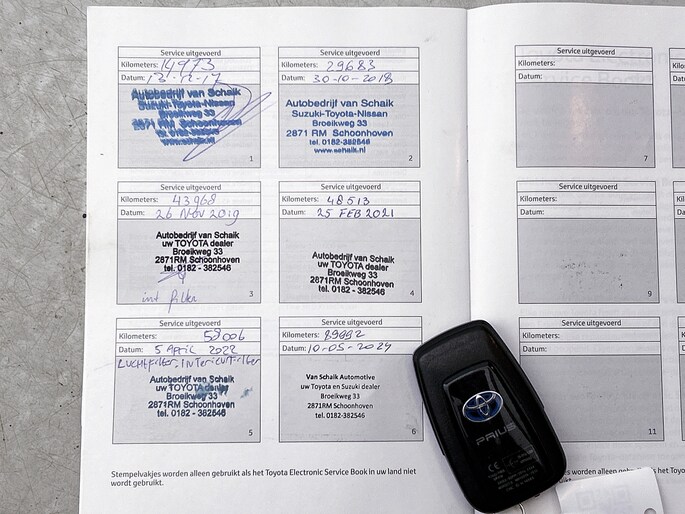 Service uitgevoerd
Kilometers: 14973
Datum: 13-12-17
Autobedrijf van Schaik
Suzuki-Toyota-Nissan
Broeikweg 33
2871 RM Schoonhoven
tel. 0182-382546
www.schaik.nl
1
Service uitgevoerd
Kilometers: 29683
Datum: 30-10-2018
Autobedrijf van Schaik
Suzuki-Toyota-Nissan
Broeikweg 33
2871 RM Schoonhoven
tel. 0182-382546
www.schaik.nl
2
Service uitgevoerd
Kilometers: 43968
Datum: 26 Nov 2019
Autobedrijf van Schaik
uw TOYOTA dealer
Broeikweg 33
2871RM Schoonhoven
tel. 0182 - 382546
int filter
3
Service uitgevoerd
Kilometers: 48513
Datum: 25 FEB 2021
Autobedrijf van Schaik
uw TOYOTA dealer
Broeikweg 33
2871RM Schoonhoven
tel. 0182 - 382546
4
Service uitgevoerd
Kilometers: 58006
Datum: 5 April 2022
Luchtfilter, interieurfilter
Autobedrijf van Schaik
uw TOYOTA dealer
Broeikweg 33
2871RM Schoonhoven
tel. 0182 - 382546
5
Service uitgevoerd
Kilometers: 89992
Datum: 10-05-2024
Van Schaik Automotive
uw Toyota en Suzuki dealer
Broeikweg 33
2871RM Schoonhoven
tel. 0182 - 382546
6
Stempelvakjes worden alleen gebruikt als het Toyota Electronic Service Book in uw land niet
wordt gebruikt.
Service uitgevoerd
Kilometers:
Datum:
7
Service uitgevoerd
Kilometers:
Datum:
9
Service uitgevoerd
11
worden alleen gebruikt als
PRIUS
CE